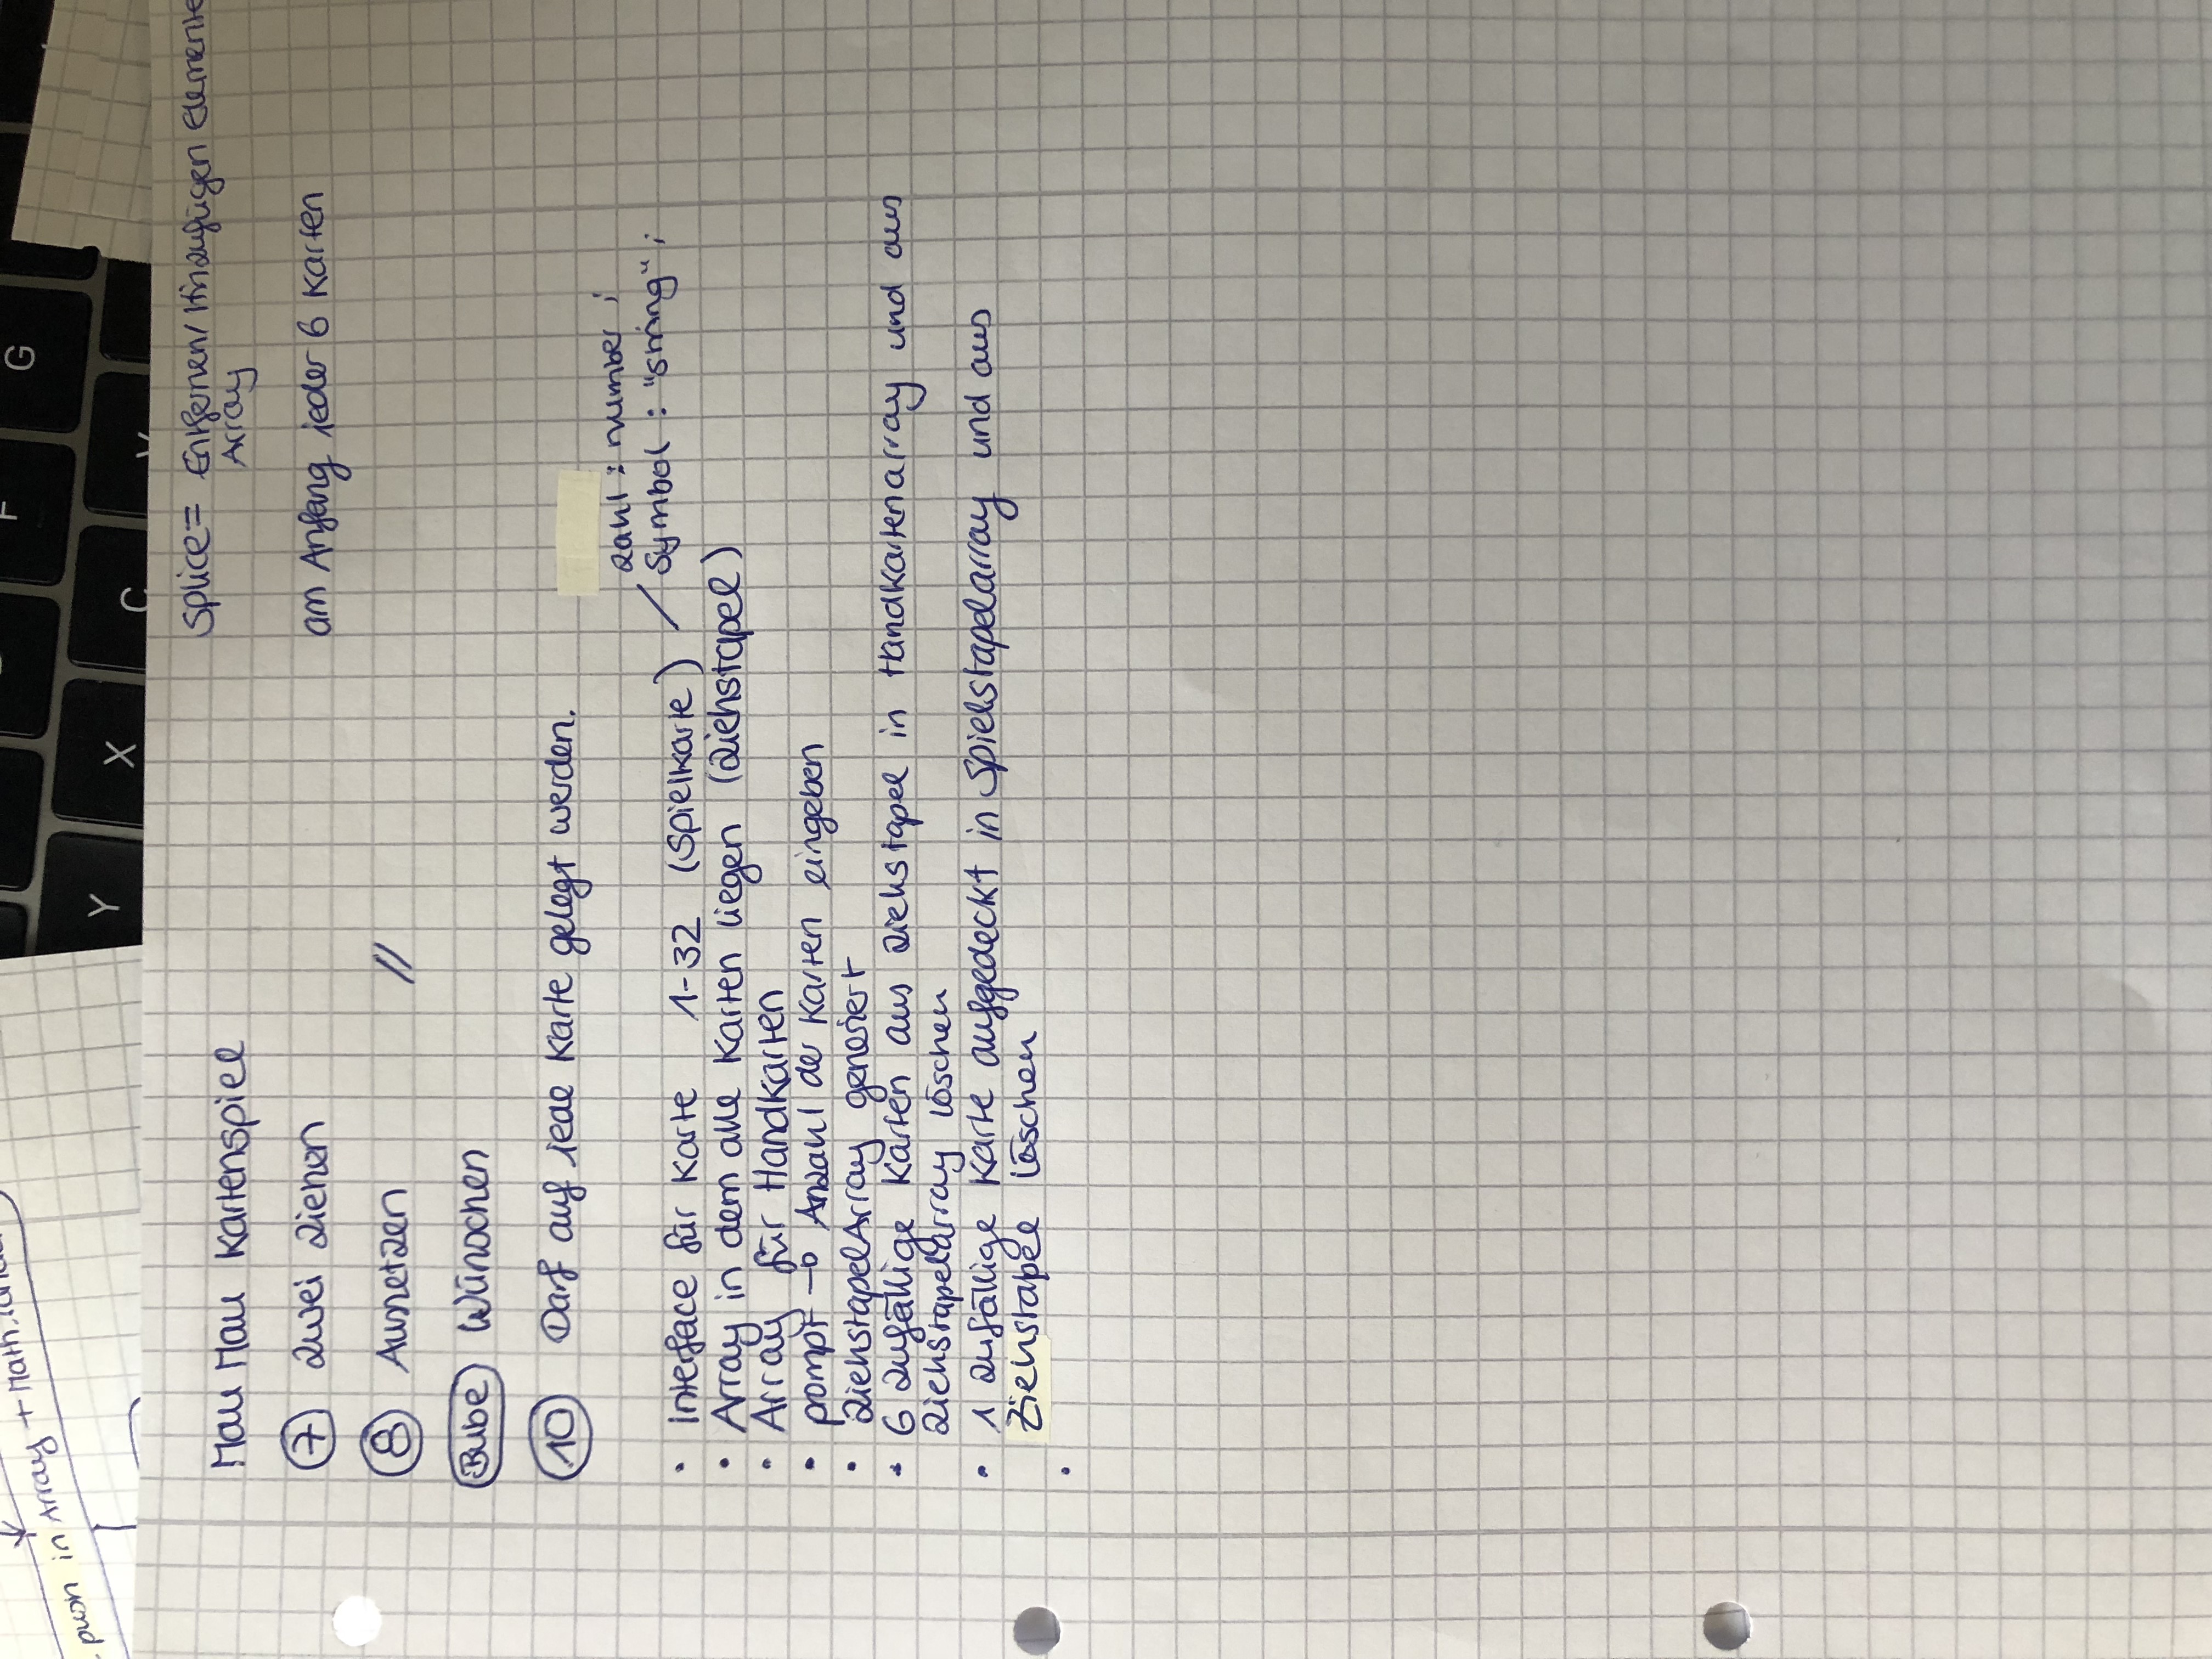 push in Array + Math.
F
G
Y
X
C
V
Mau Mau Kartenspiel
splice = Entfernen/Hinzufügen Elemente
Array
⑦ zwei ziehen
am Anfang jeder 6 Karten
⑧ Aussetzen //
Bube Wünschen
⑩ Darf auf jede Karte gelegt werden.
zahl : number ;
Symbol : "string" ;
• Interface für Karte 1-32 (Spielkarte)
• Array in dem alle Karten liegen (Ziehstapel)
• Array für Handkarten
• prompt → Anzahl der Karten eingeben
• ZiehstapelArray generiert
• 6 zufällige Karten aus Ziehstapel in Handkartenarray und aus
Ziehstapelarray löschen
• 1 zufällige Karte aufgedeckt in Spielstapelarray und aus
Ziehstapel löschen
•